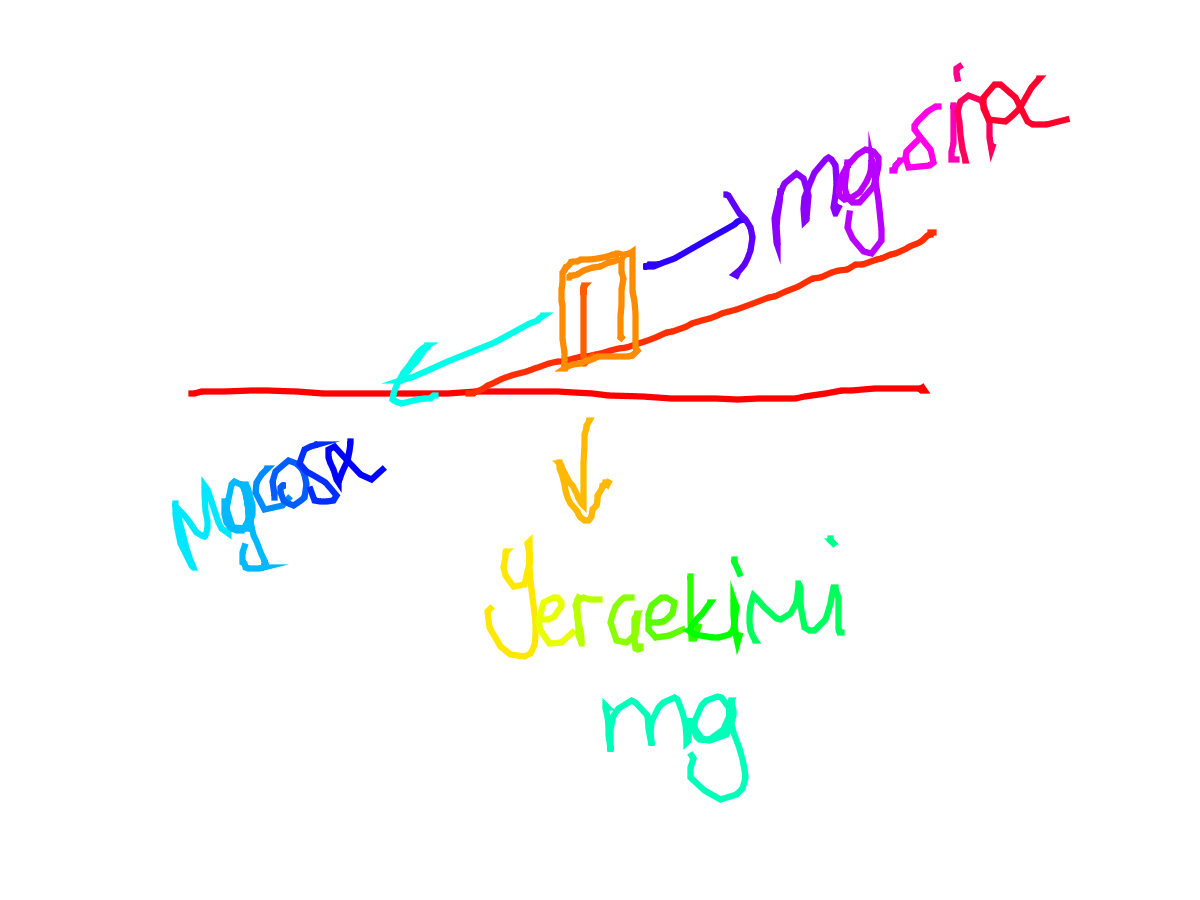 mg.sinα
Mgcosα
Yercekimi
mg